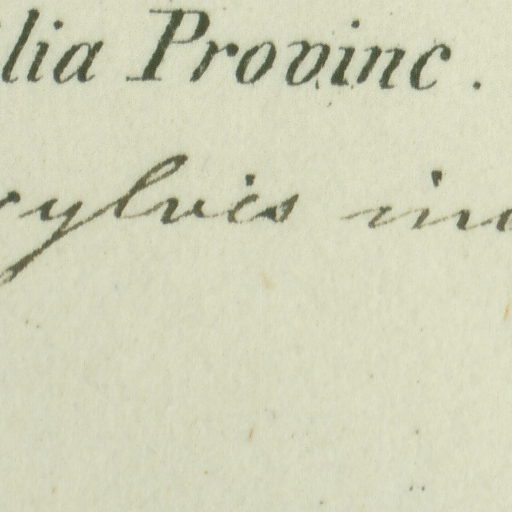 lia Provinc.
sylvis in